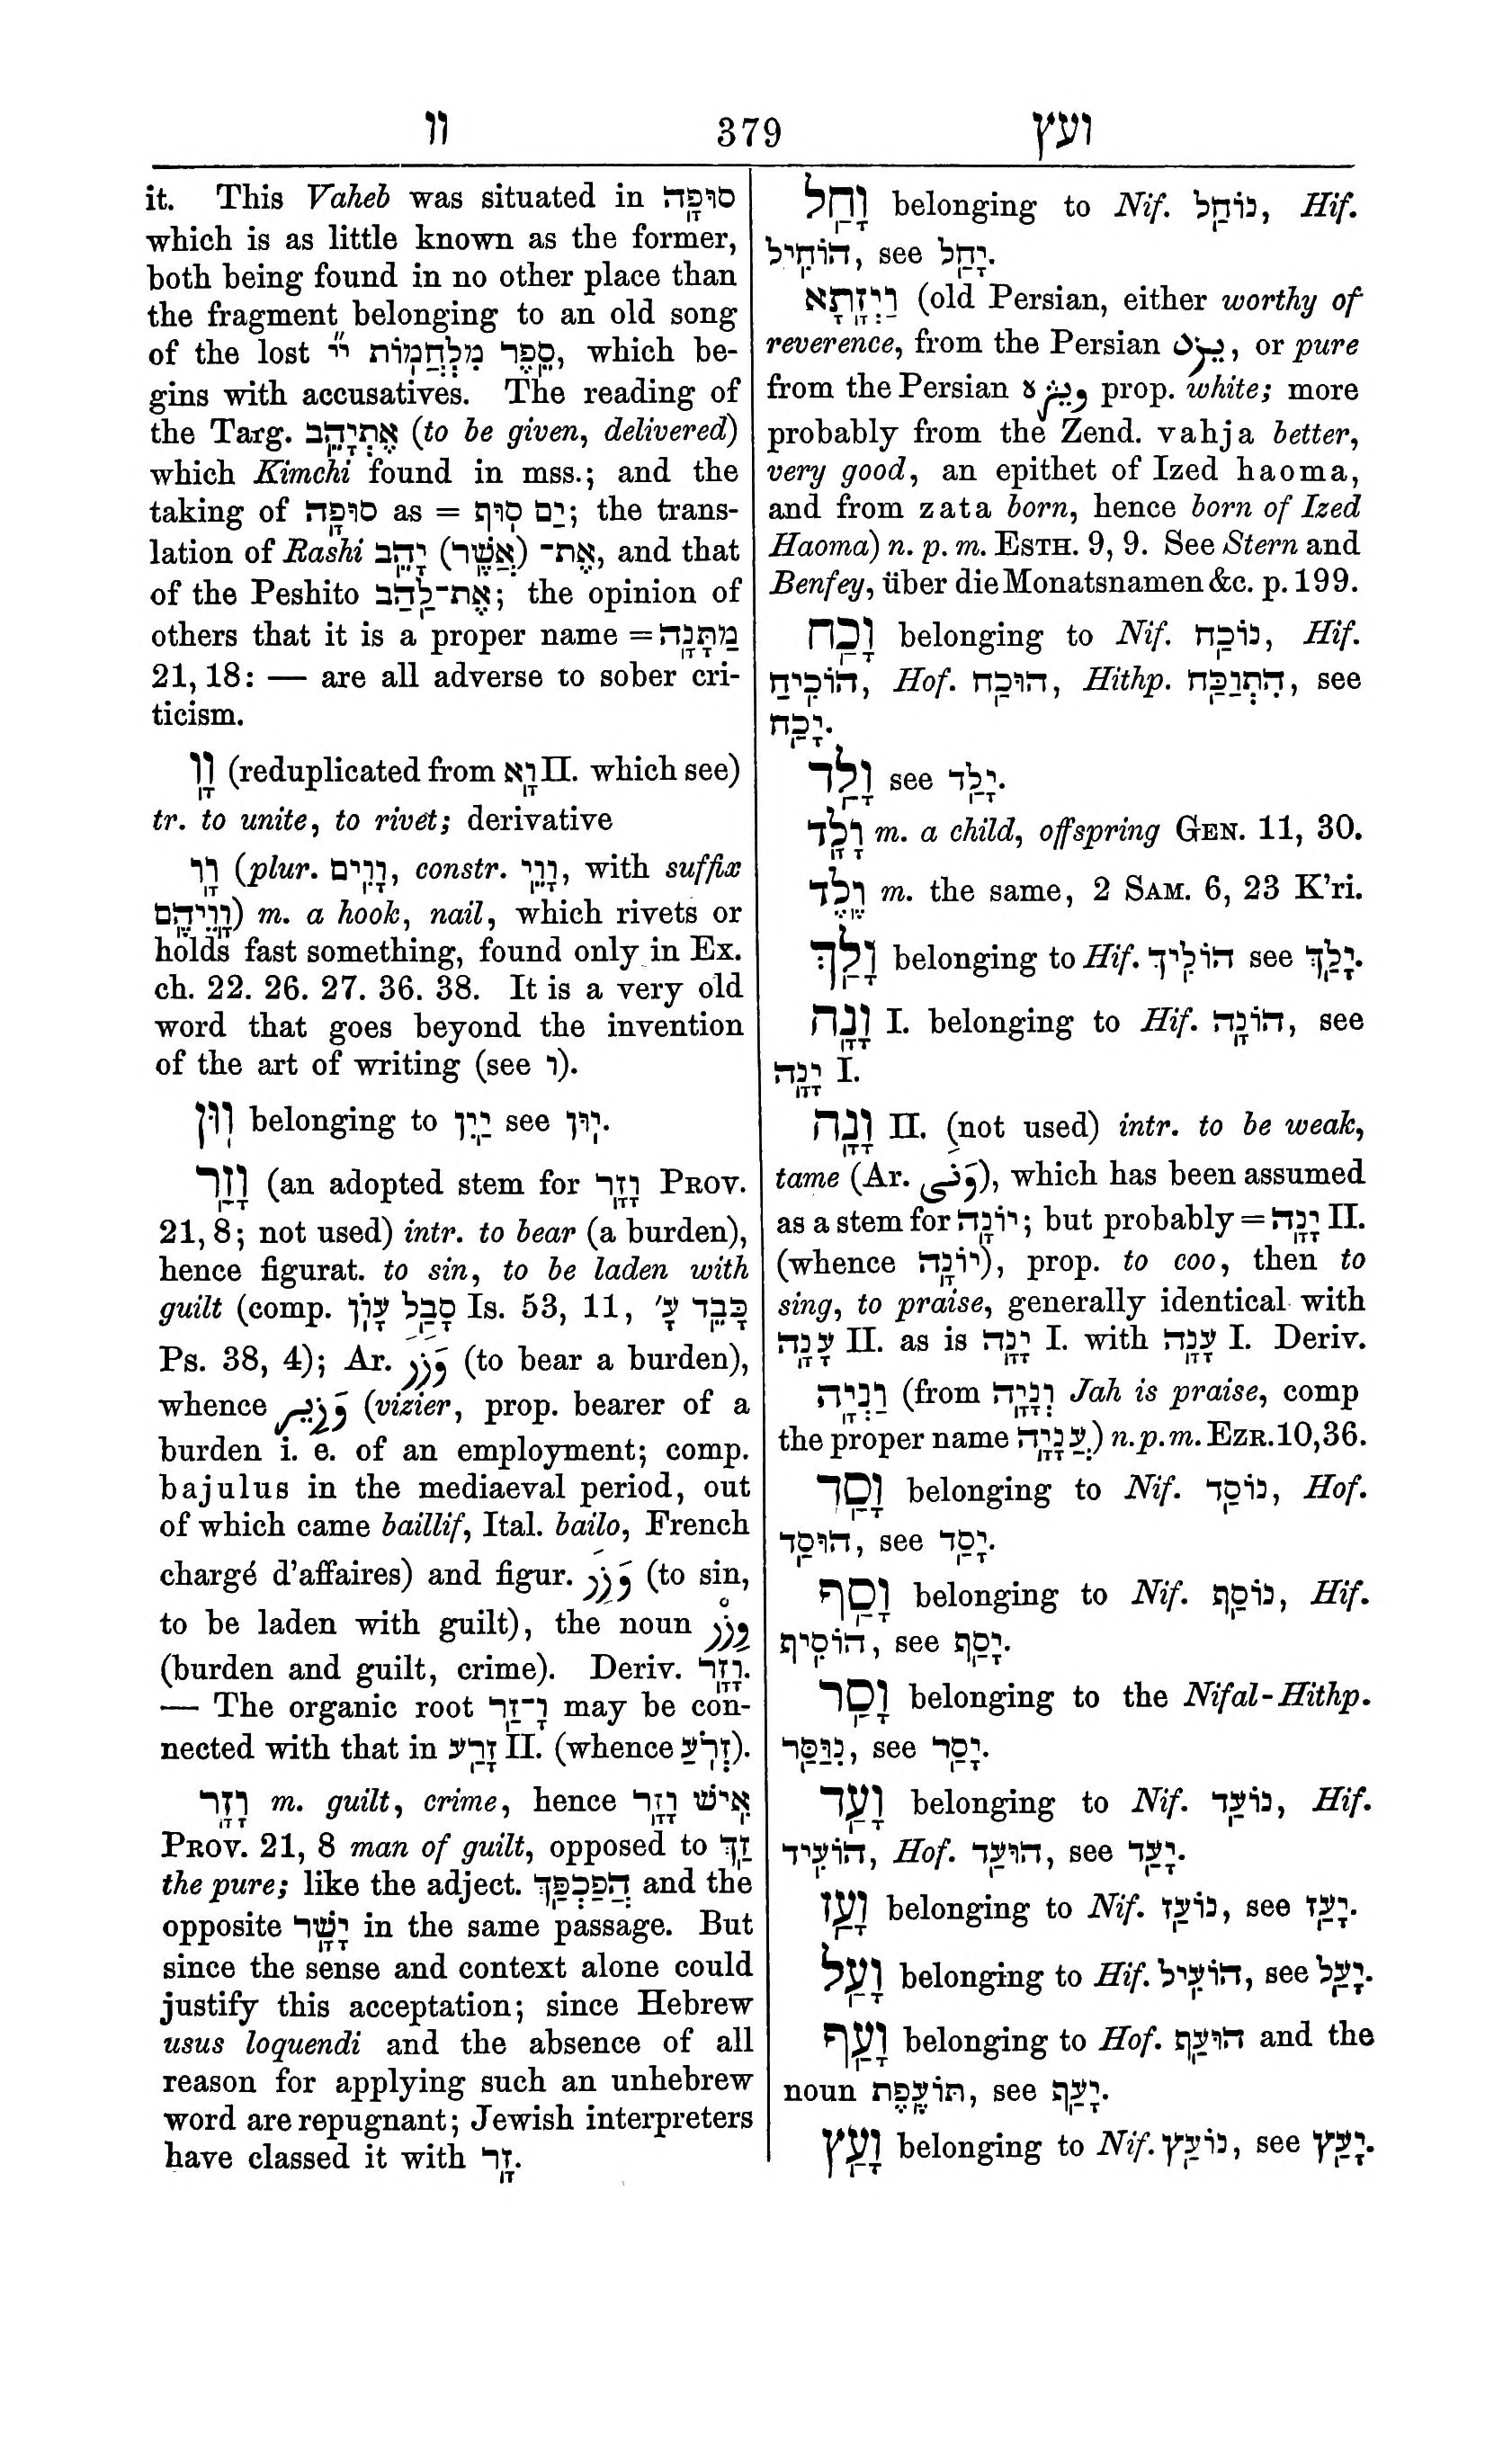 וו 379 ועץ
it. This Vaheb was situated in סוּפָה
which is as little known as the former,
both being found in no other place than
the fragment belonging to an old song
of the lost סֵפֶר מִלְחֲמוֹת יי״, which be-
gins with accusatives. The reading of
the Targ. אֶתְיָהֵב (to be given, delivered)
which Kimchi found in mss.; and the
taking of סוּפָה as = יַם סוּף; the trans-
lation of Rashi אֶת־ (אֲשֶׁר) יָהֵב, and that
of the Peshito אֶת־לַהַב; the opinion of
others that it is a proper name = מַתָּנָה
21, 18: — are all adverse to sober cri-
ticism.
וָו (reduplicated from וָא II. which see)
tr. to unite, to rivet; derivative
וָו (plur. וָוִים, constr. וָוֵי, with suffix
וָוֵיהֶם) m. a hook, nail, which rivets or
holds fast something, found only in Ex.
ch. 22. 26. 27. 36. 38. It is a very old
word that goes beyond the invention
of the art of writing (see ו).
וּון belonging to יַיִן see יִון.
וָזַר (an adopted stem for וָזָר Prov.
21, 8; not used) intr. to bear (a burden),
hence figurat. to sin, to be laden with
guilt (comp. סָבַל עָוֹן Is. 53, 11, כָּבֵד עָ׳
Ps. 38, 4); Ar. وَزَرَ (to bear a burden),
whence وَزِير (vizier, prop. bearer of a
burden i. e. of an employment; comp.
bajulus in the mediaeval period, out
of which came baillif, Ital. bailo, French
chargé d'affaires) and figur. وَزِرَ (to sin,
to be laden with guilt), the noun وِزْر
(burden and guilt, crime). Deriv. וָזָר.
— The organic root וָ־זַר may be con-
nected with that in זָרַע II. (whence זְרֹעַ).
וָזָר m. guilt, crime, hence אִישׁ וָזָר
Prov. 21, 8 man of guilt, opposed to זַךְ
the pure; like the adject. הֲפַכְפַּךְ and the
opposite יָשָׁר in the same passage. But
since the sense and context alone could
justify this acceptation; since Hebrew
usus loquendi and the absence of all
reason for applying such an unhebrew
word are repugnant; Jewish interpreters
have classed it with זָר.
וָחַל belonging to Nif. נוֹחַל, Hif.
הוֹחִיל, see יָחַל.
וַיְזָתָא (old Persian, either worthy of
reverence, from the Persian يزد, or pure
from the Persian ويژه prop. white; more
probably from the Zend. vahja better,
very good, an epithet of Ized haoma,
and from zata born, hence born of Ized
Haoma) n. p. m. Esth. 9, 9. See Stern and
Benfey, über die Monatsnamen &c. p. 199.
וָכַח belonging to Nif. נוֹכַח, Hif.
הוֹכִיחַ, Hof. הוּכַח, Hithp. הִתְוַכַּח, see
יָכַח.
וָלַד see יָלַד.
וָלָד m. a child, offspring Gen. 11, 30.
וֶלֶד m. the same, 2 Sam. 6, 23 K'ri.
וָלַךְ belonging to Hif. הוֹלִיךְ see יָלַךְ.
וָנָה I. belonging to Hif. הוֹנָה, see
יָנָה I.
וָנָה II. (not used) intr. to be weak,
tame (Ar. وَنَى), which has been assumed
as a stem for יוֹנָה; but probably = יָנָה II.
(whence יוֹנָה), prop. to coo, then to
sing, to praise, generally identical with
עָנָה II. as is יָנָה I. with עָנָה I. Deriv.
וַנְיָה (from וְנָיָה Jah is praise, comp
the proper name עֲנָיָה) n. p. m. Ezr. 10, 36.
וָסַד belonging to Nif. נוֹסַד, Hof.
הוּסַד, see יָסַד.
וָסַף belonging to Nif. נוֹסַף, Hif.
הוֹסִיף, see יָסַף.
וָסַר belonging to the Nifal-Hithp.
נִוַּסַּר, see יָסַר.
וָעַד belonging to Nif. נוֹעַד, Hif.
הוֹעִיד, Hof. הוּעַד, see יָעַד.
וָעַז belonging to Nif. נוֹעַז, see יָעַז.
וָעַל belonging to Hif. הוֹעִיל, see יָעַל.
וָעַף belonging to Hof. הוּעַף and the
noun תּוֹעֶפֶת, see יָעַף.
וָעַץ belonging to Nif. נוֹעַץ, see יָעַץ.